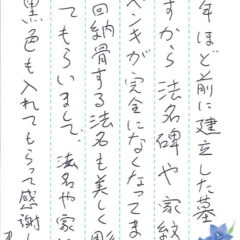 年ほど前に建立した墓
すから法名碑や家紋
ペンキが完全になくなってま
回納骨する法名も美しく彫
てもらいまして、法名や家
黒色も入れてもらって感謝し